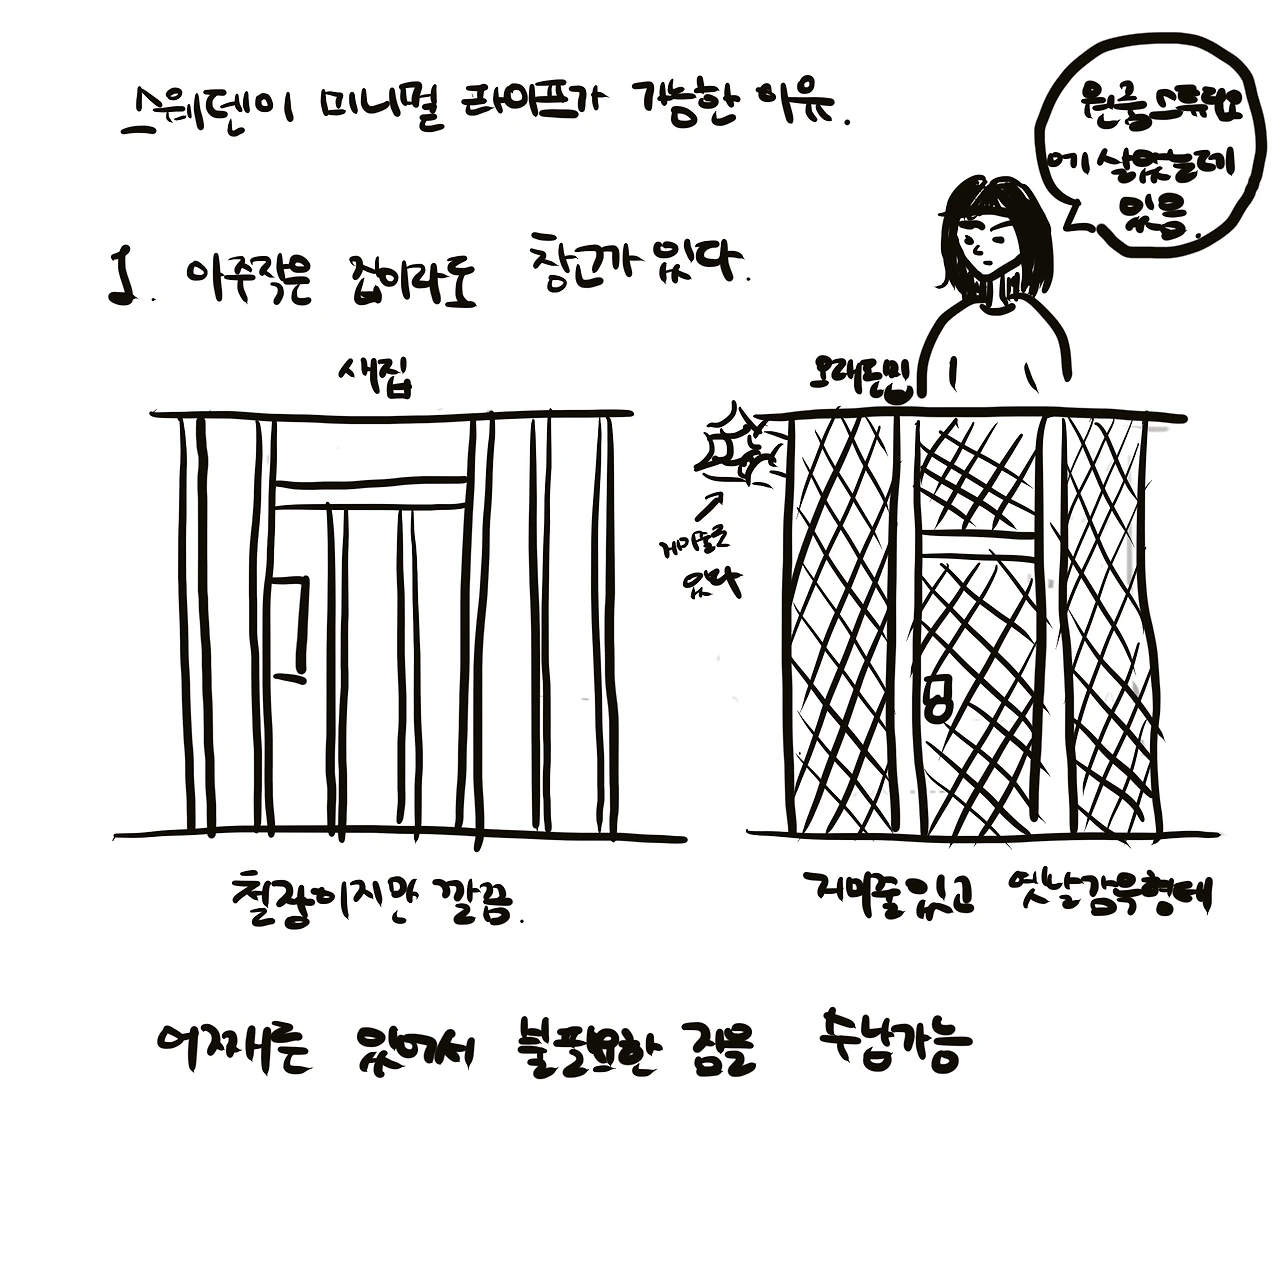 스웨덴이 미니멀 라이프가 가능한 이유.
원룸 스튜디오
에 살았는데
있음.
1. 아주작은 집이라도 창고가 있다.
새집
오래된집
거미줄도
있다
철장이지만 깔끔.
거미줄있고 옛날감옥형태
어쨰든 있어서 불필요한 짐을 수납가능